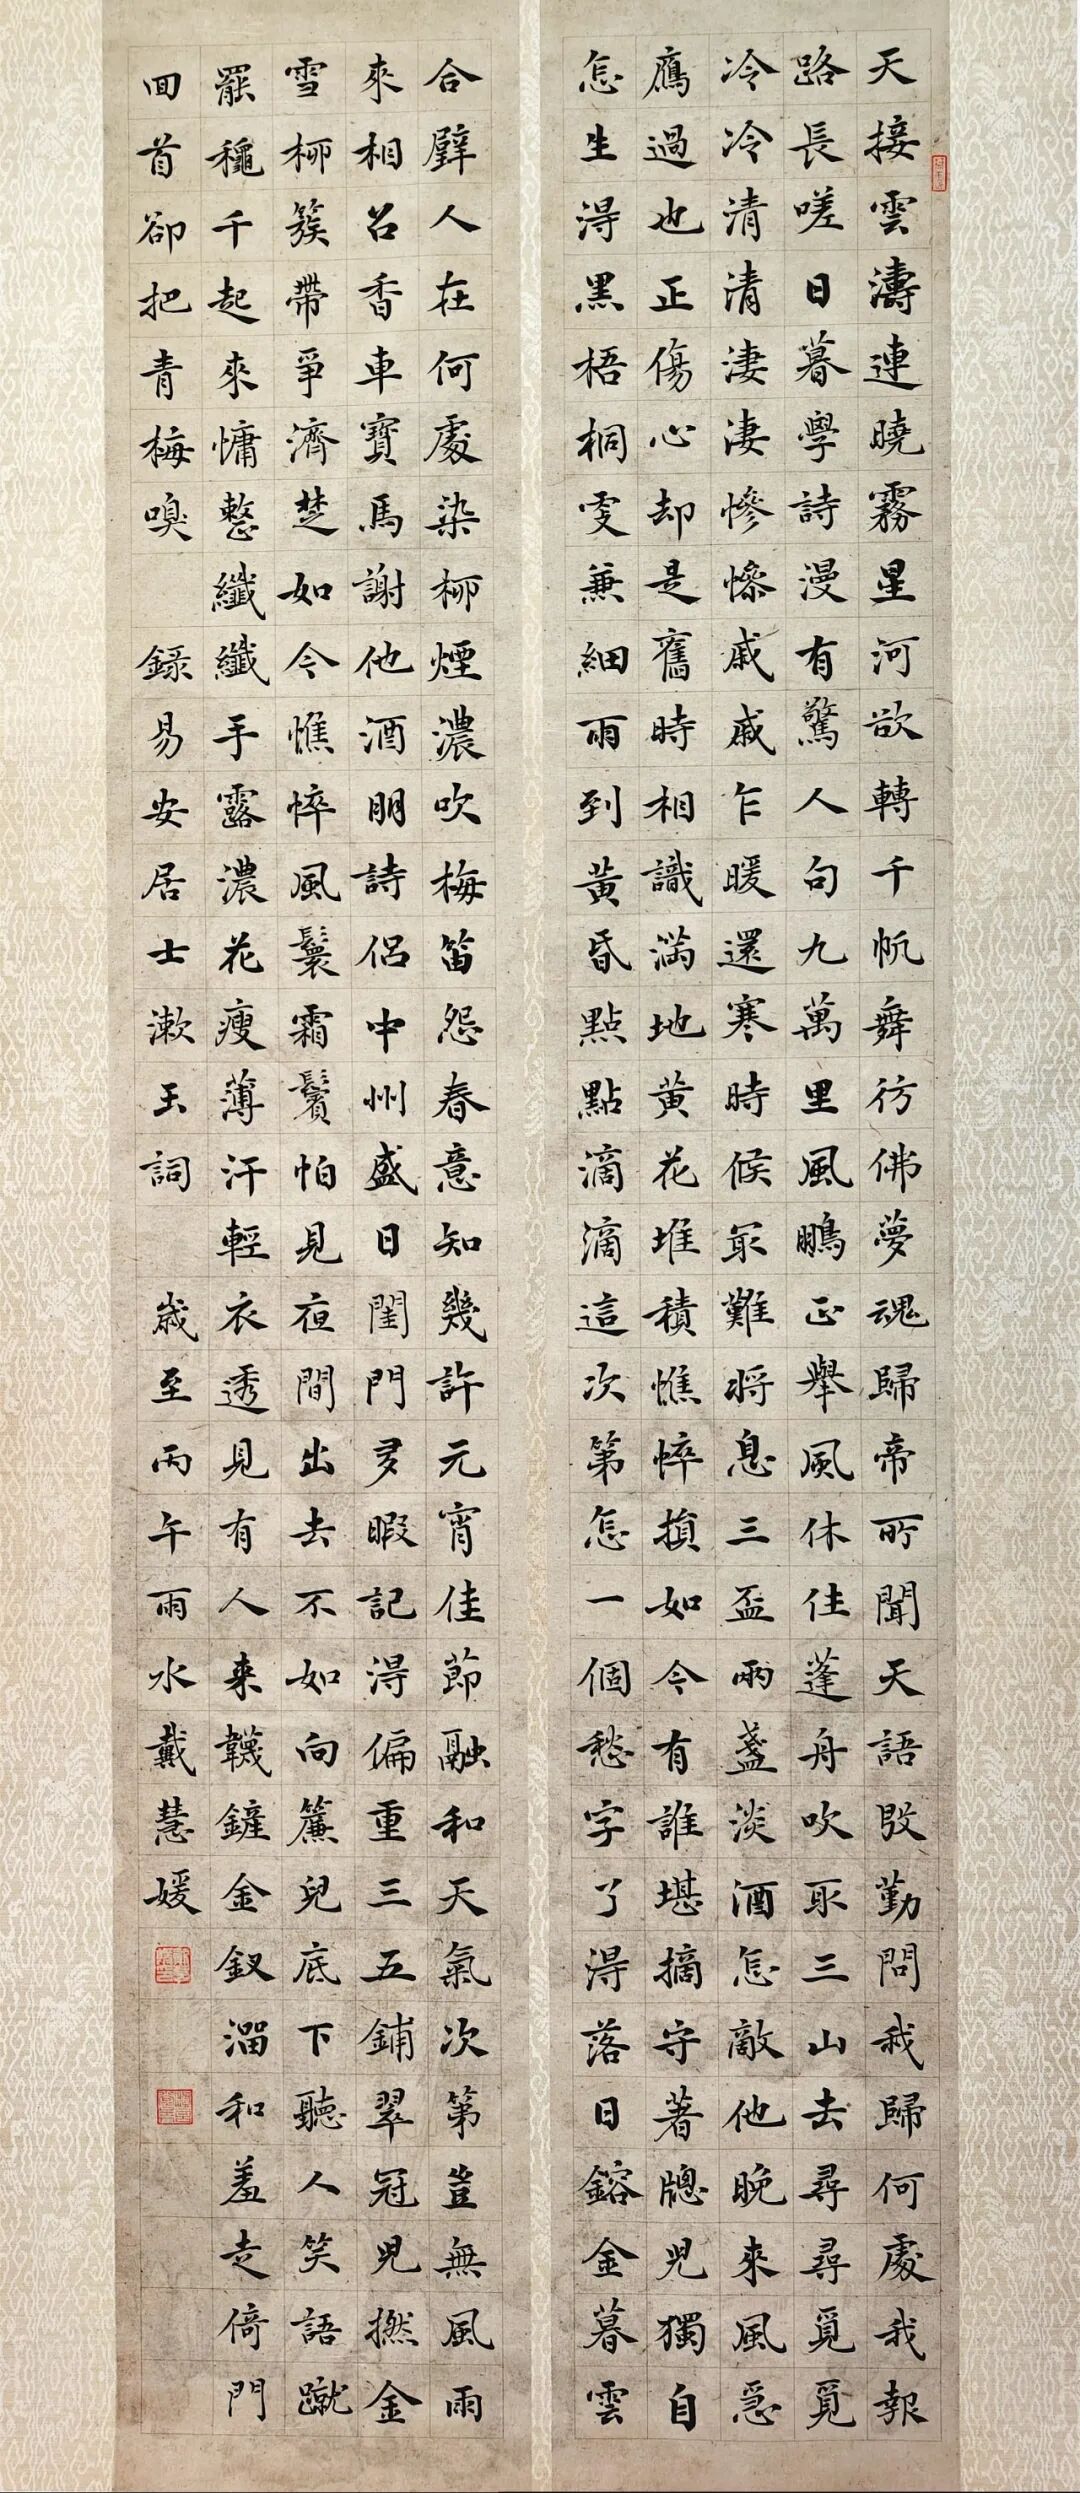 天接雲濤連曉霧星河欲轉千帆舞彷佛夢魂歸帝所聞天語殷勤問我歸何處我報
路長嗟日暮學詩漫有驚人句九萬里風鵬正舉風休住蓬舟吹取三山去尋尋覓覓
冷冷清清淒淒慘慘戚戚乍暖還寒時候最難將息三盃兩盞淡酒怎敵他晚來風急
鴈過也正傷心却是舊時相識滿地黃花堆積憔悴損如今有誰堪摘守著牕兒獨自
怎生得黑梧桐更兼細雨到黃昏點點滴滴這次第怎一個愁字了得落日鎔金暮雲
合璧人在何處染柳煙濃吹梅笛怨春意知幾許元宵佳節融和天氣次第豈無風雨
來相召香車寶馬謝他酒朋詩侶中州盛日閨門多暇記得偏重三五鋪翠冠兒撚金
雪柳簇帶爭濟楚如今憔悴風鬟霜鬢怕見夜間出去不如向簾兒底下聽人笑語蹴
罷鞦千起來慵整纖纖手露濃花瘦薄汗輕衣透見有人來韈鏟金釵溜和羞走倚門
回首卻把青梅嗅 錄易安居士漱玉詞 歲至丙午雨水戴慧媛